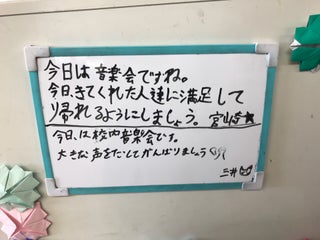 今日は音楽会ですね。
今日、きてくれた人達に満足して
帰れるようにしましょう。宮山寺★
今日は校内音楽会です。
大きな声をだしてがんばりましょう
三井